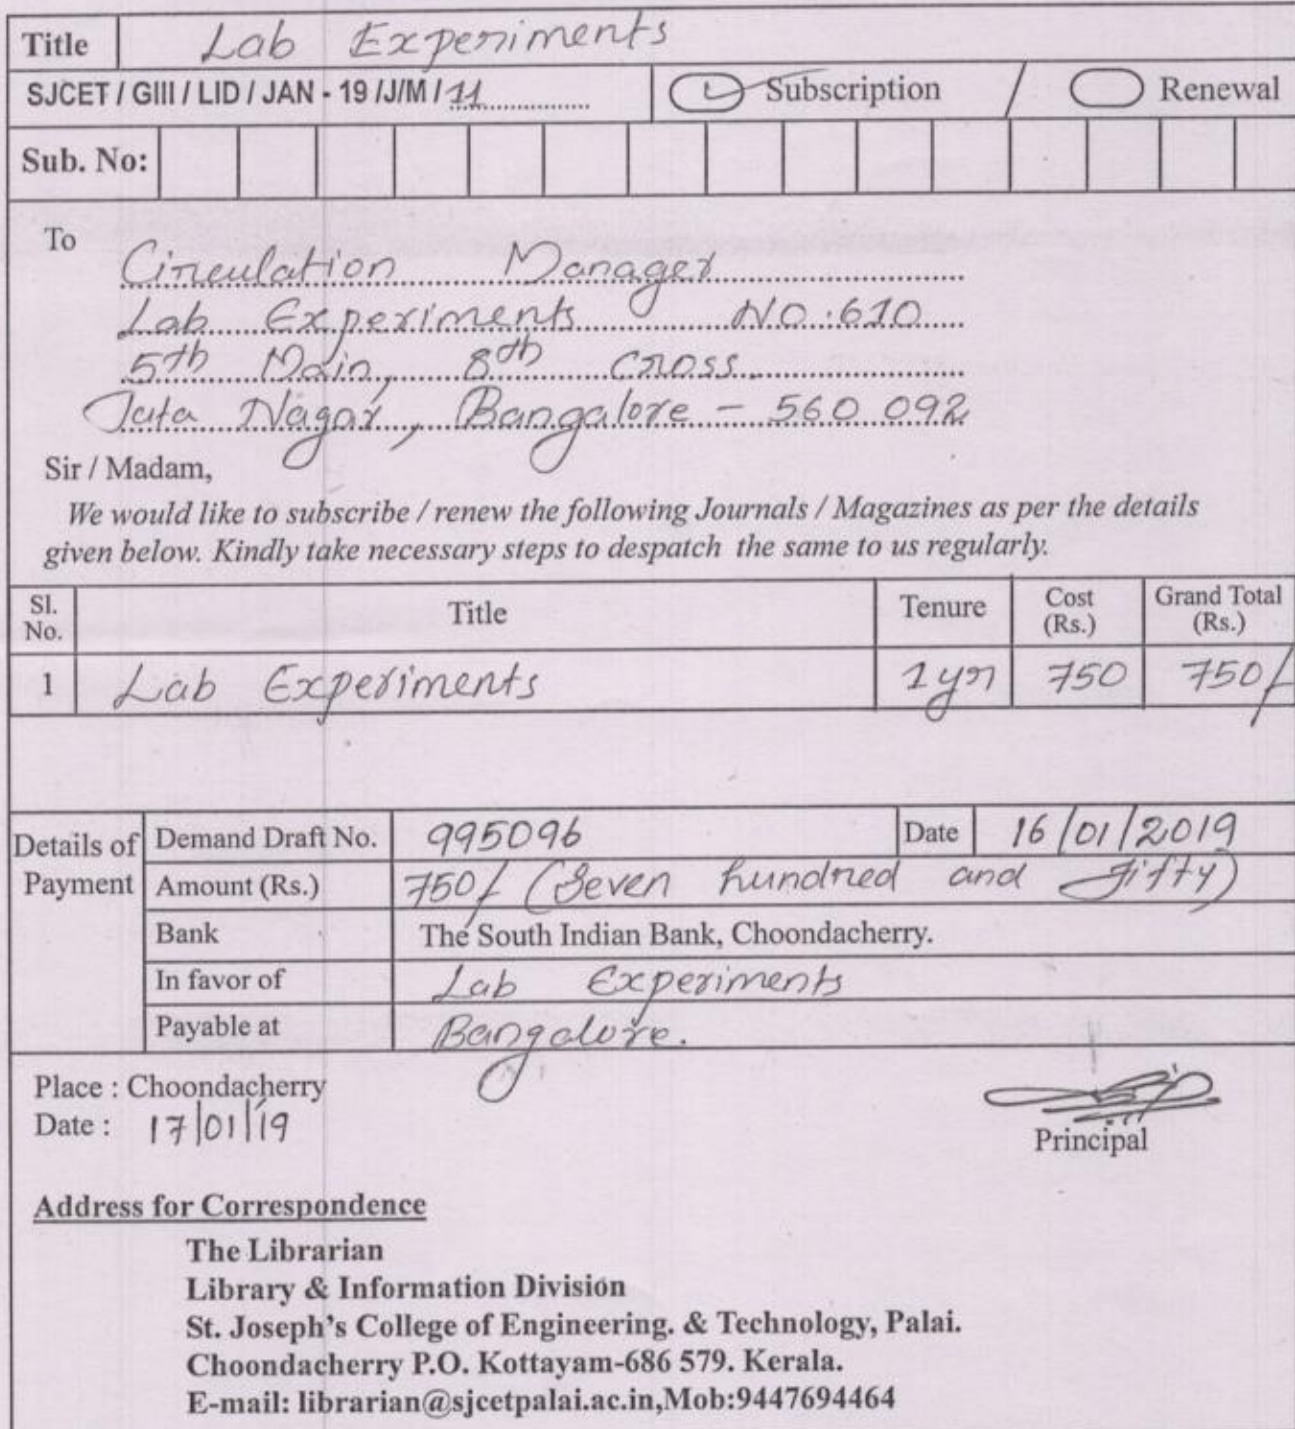 Title Lab Experiments
SJCET / GIII / LID / JAN - 19 /J/M / 11 Subscription / Renewal
Sub. No:
To
Circulation Manager
Lab Experiments NO.610
5th Main, 8th Cross
Tata Nagar, Bangalore - 560 092
Sir / Madam,
We would like to subscribe / renew the following Journals / Magazines as per the details
given below. Kindly take necessary steps to despatch the same to us regularly.
Sl. No. Title Tenure Cost (Rs.) Grand Total (Rs.)
1 Lab Experiments 1 yr 750 750/-
Details of Payment
Demand Draft No. 995096 Date 16/01/2019
Amount (Rs.) 750/- (Seven hundred and Fifty)
Bank The South Indian Bank, Choondacherry.
In favor of Lab Experiments
Payable at Bangalore.
Place : Choondacherry
Date : 17/01/19
Principal
Address for Correspondence
The Librarian
Library & Information Division
St. Joseph's College of Engineering. & Technology, Palai.
Choondacherry P.O. Kottayam-686 579. Kerala.
E-mail: librarian@sjcetpalai.ac.in,Mob:9447694464